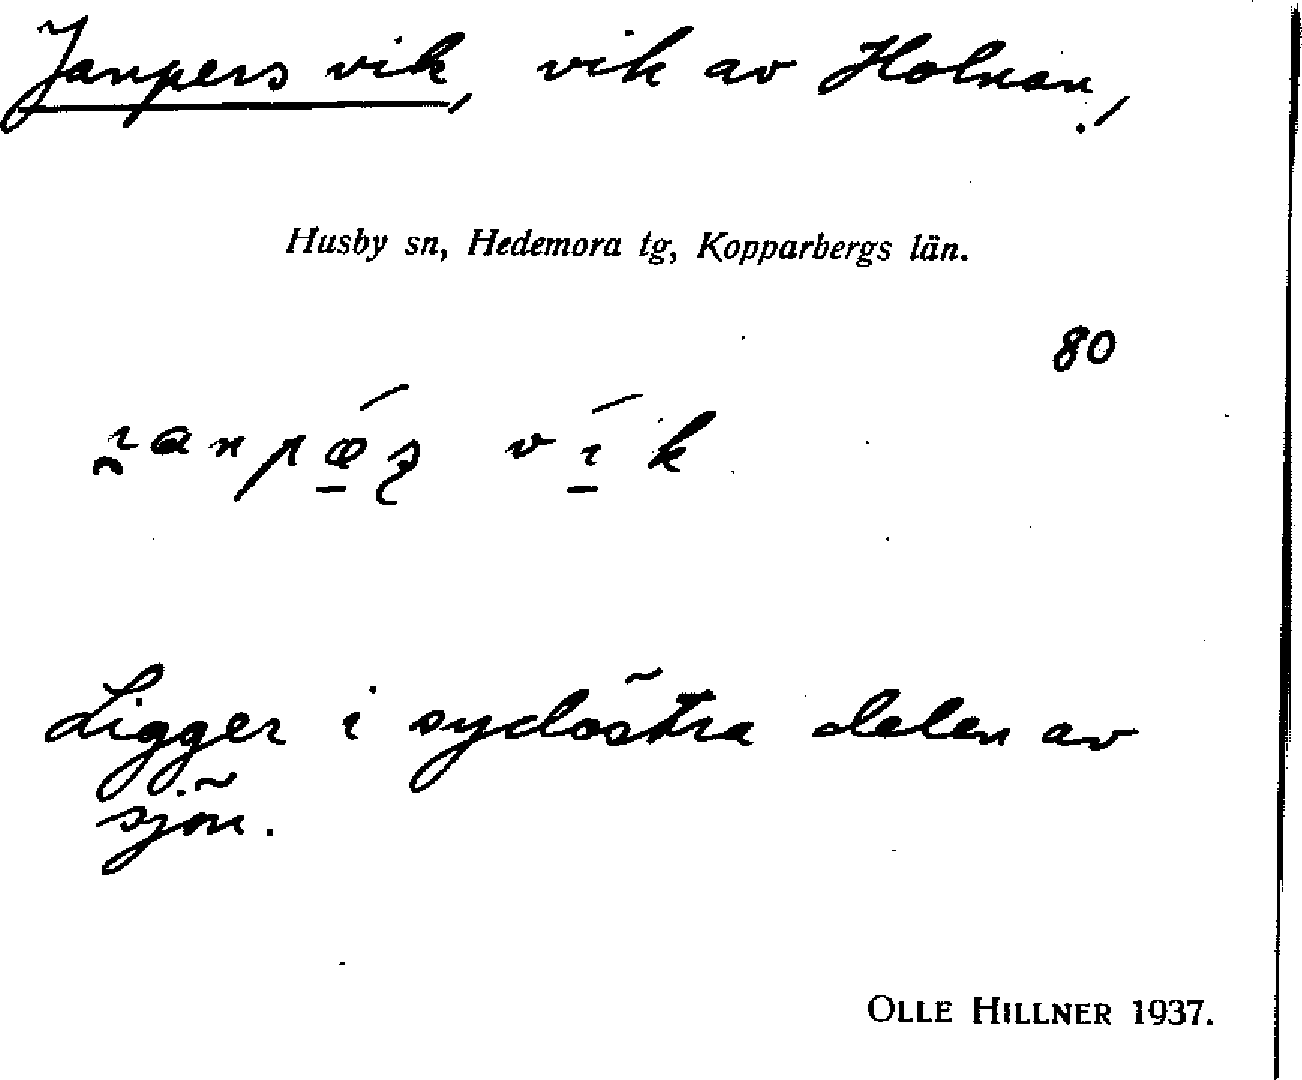 Janpers vik, vik av Holnan,
Husby sn, Hedemora tg, Kopparbergs län.
80
vík
Ligger i sydöstra delen av
sjön.
OLLE HILLNER 1937.